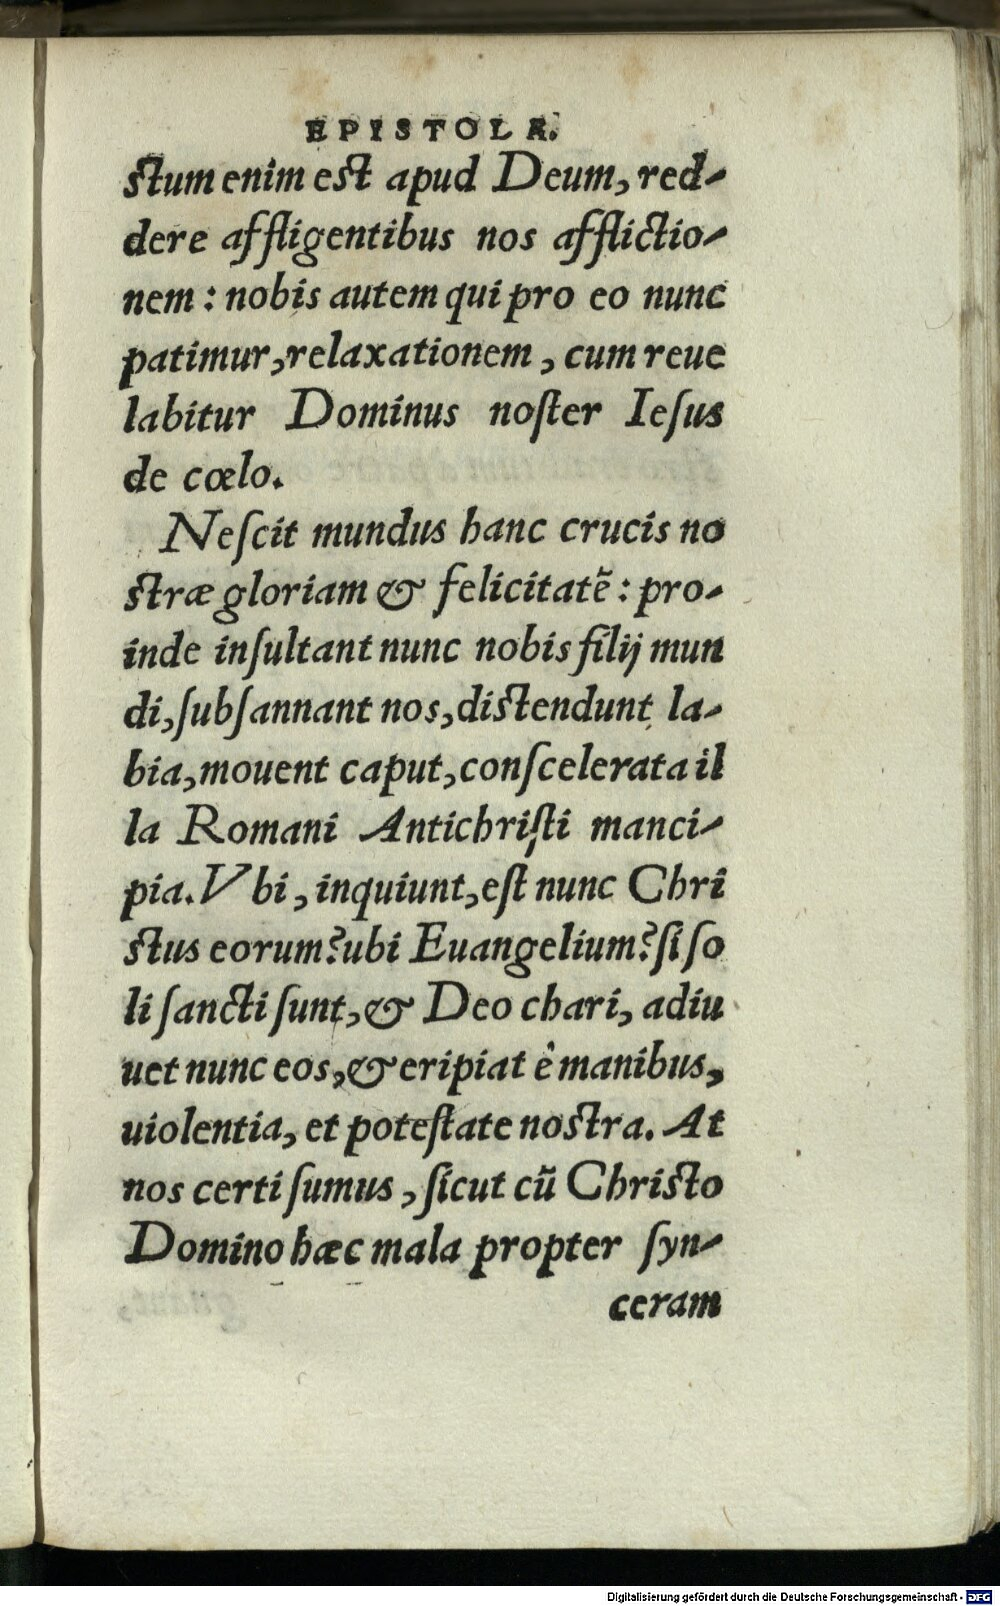 EPISTOLÆ.
stum enim est apud Deum, red-
dere affligentibus nos afflictio-
nem: nobis autem qui pro eo nunc
patimur, relaxationem, cum reue
labitur Dominus noſter Ieſus
de cœlo.
Neſcit mundus hanc crucis no
stræ gloriam & felicitatē: pro-
inde inſultant nunc nobis filij mun
di, ſubſannant nos, distendunt la-
bia, mouent caput, conſcelerata il
la Romani Antichriſti manci-
pia. Vbi, inquiunt, eſt nunc Chri
stus eorum? ubi Euangelium? ſi ſo
li ſancti ſunt, & Deo chari, adiu
uet nunc eos, & eripiat è manibus,
uiolentia, et poteſtate nostra. At
nos certi ſumus, ſicut cū Christo
Domino hæc mala propter ſyn-
ceram
Digitalisierung gefördert durch die Deutsche Forschungsgemeinschaft - DFG